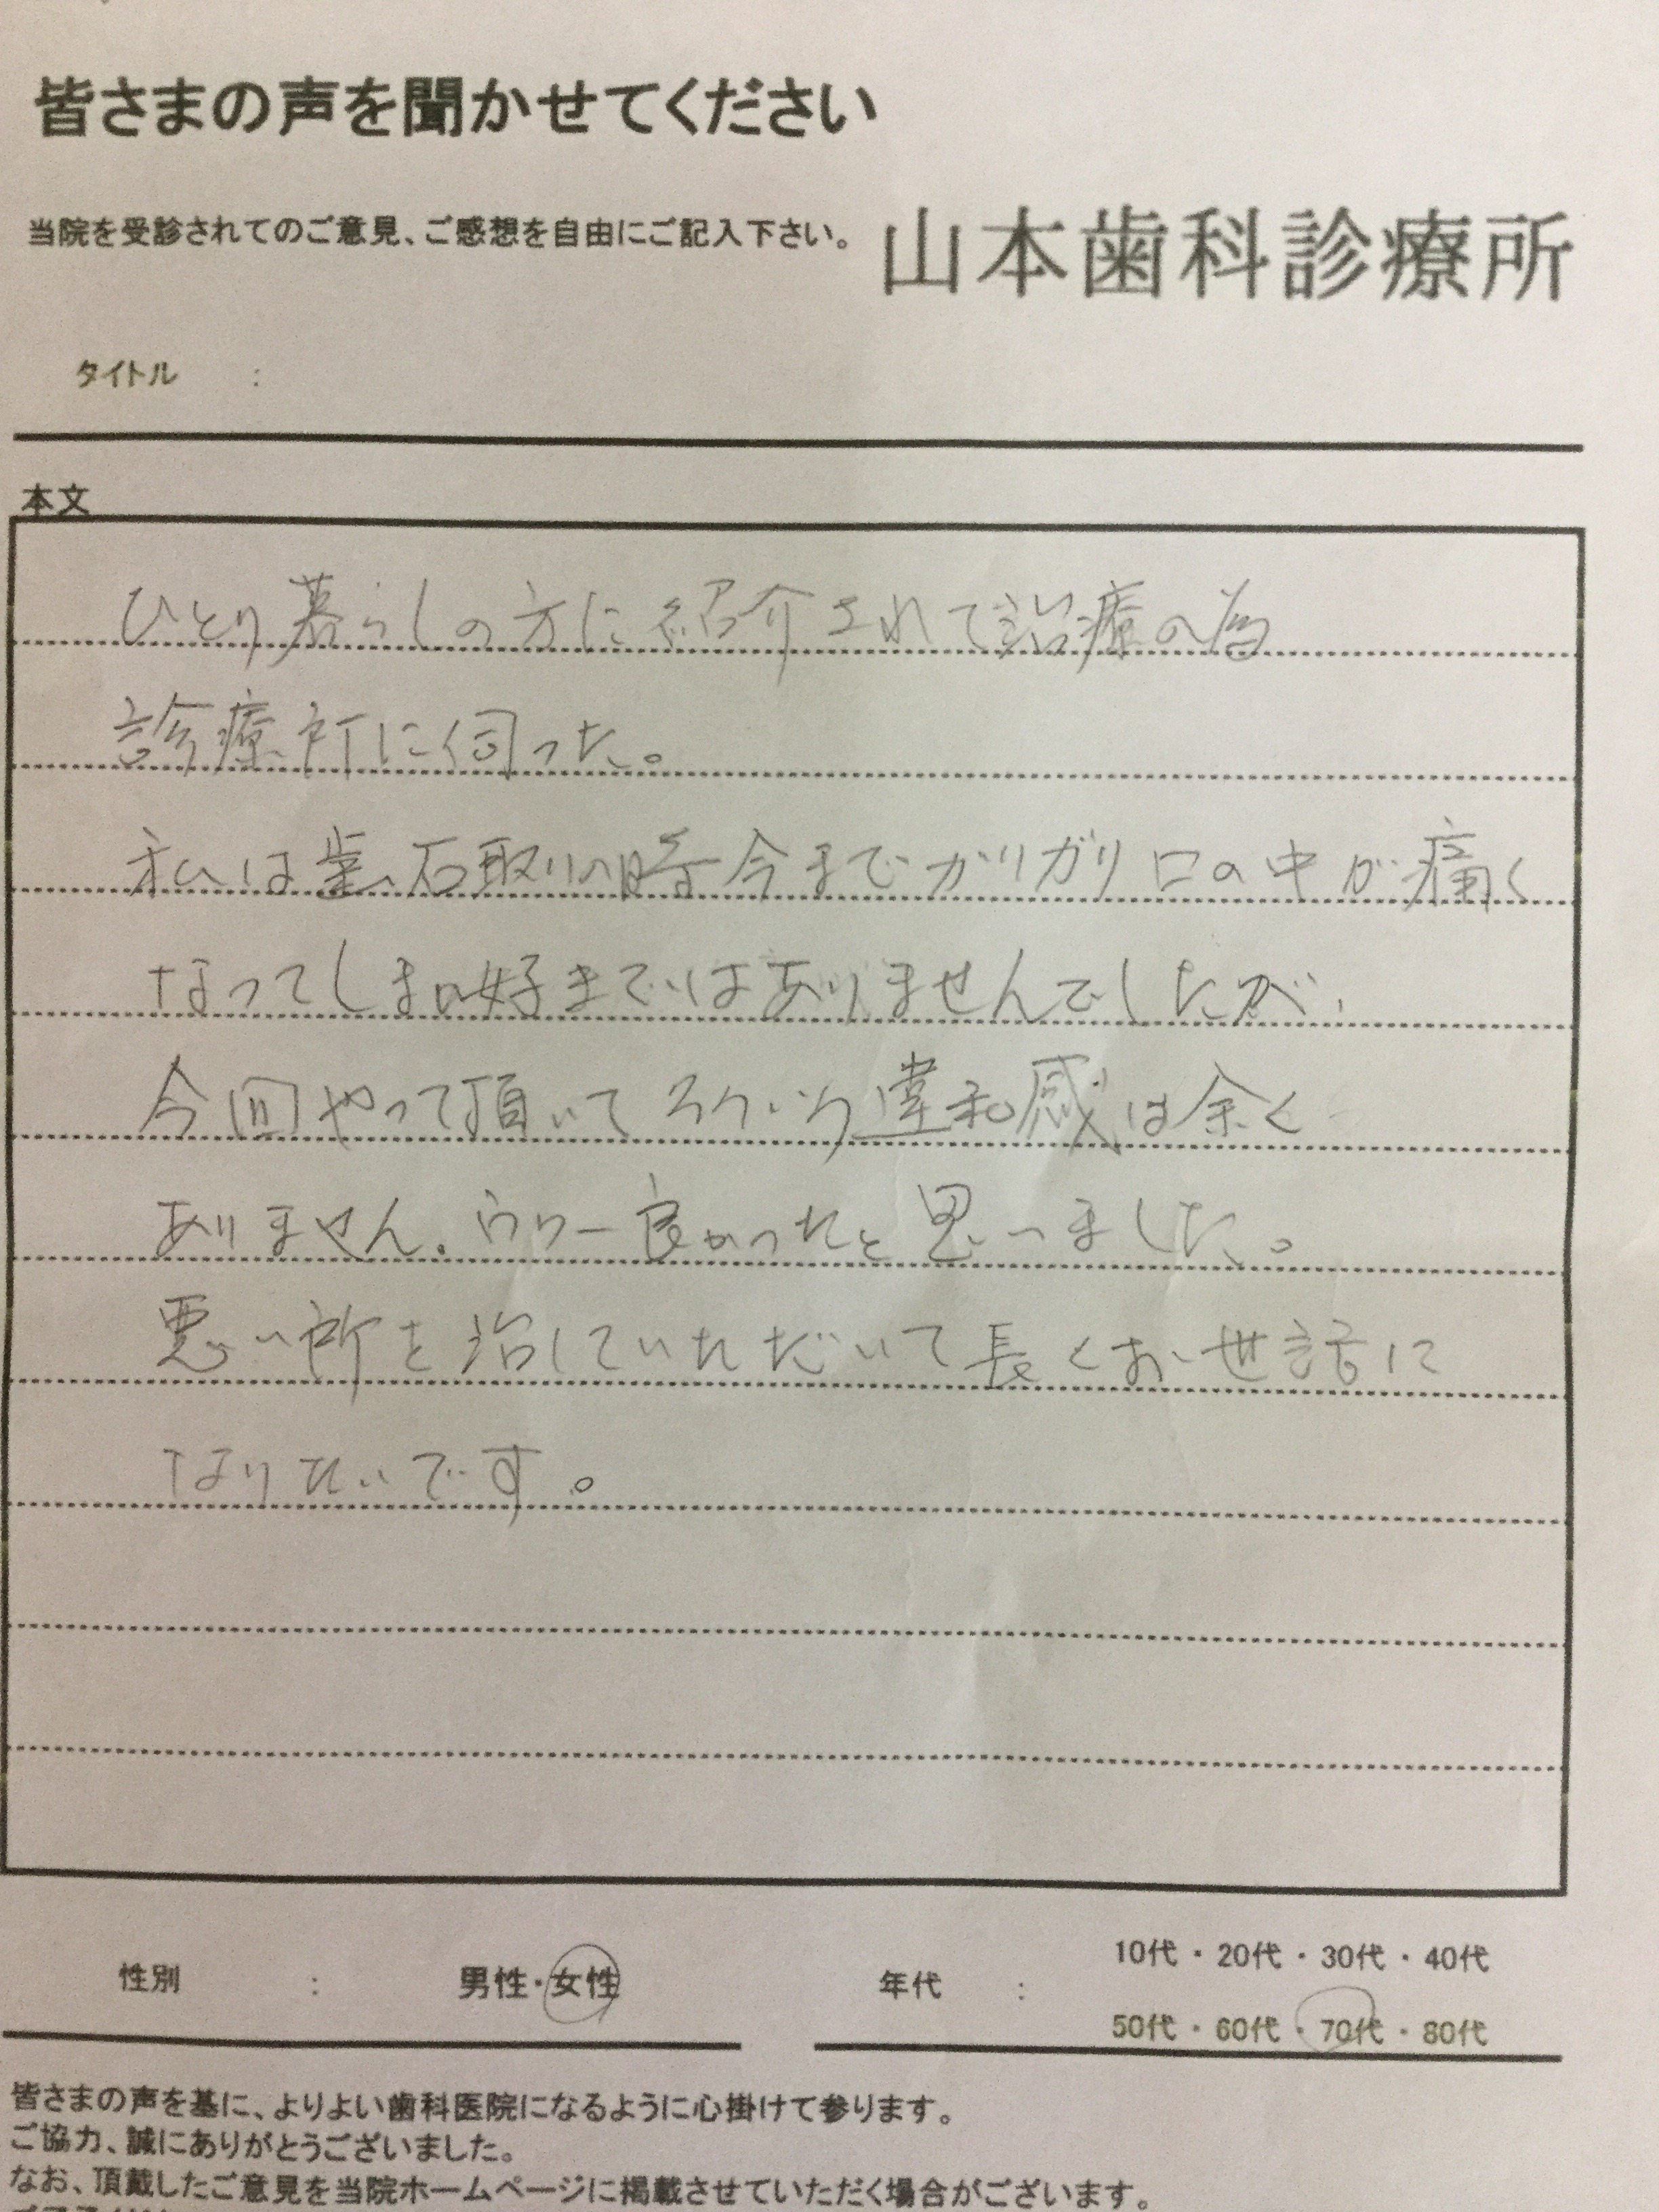 皆さまの声を聞かせてください
当院を受診されてのご意見、ご感想を自由にご記入下さい。
山本歯科診療所
タイトル :
本文
ひとり暮らしの方に紹介されて治療の為
診療所に伺った。
私は歯石取りの時今までガリガリ口の中が痛く
なってしまい好きではありませんでしたが、
今回やって頂いてそういう違和感は余く
ありません。 良かったと思いました。
悪い所を治していただいて長くお世話に
なりたいです。
性別 : 男性・女性
年代 : 10代・20代・30代・40代
50代・60代・70代・80代
皆さまの声を基に、よりよい歯科医院になるように心掛けて参ります。
ご協力、誠にありがとうございました。
なお、頂戴したご意見を当院ホームページに掲載させていただく場合がございます。